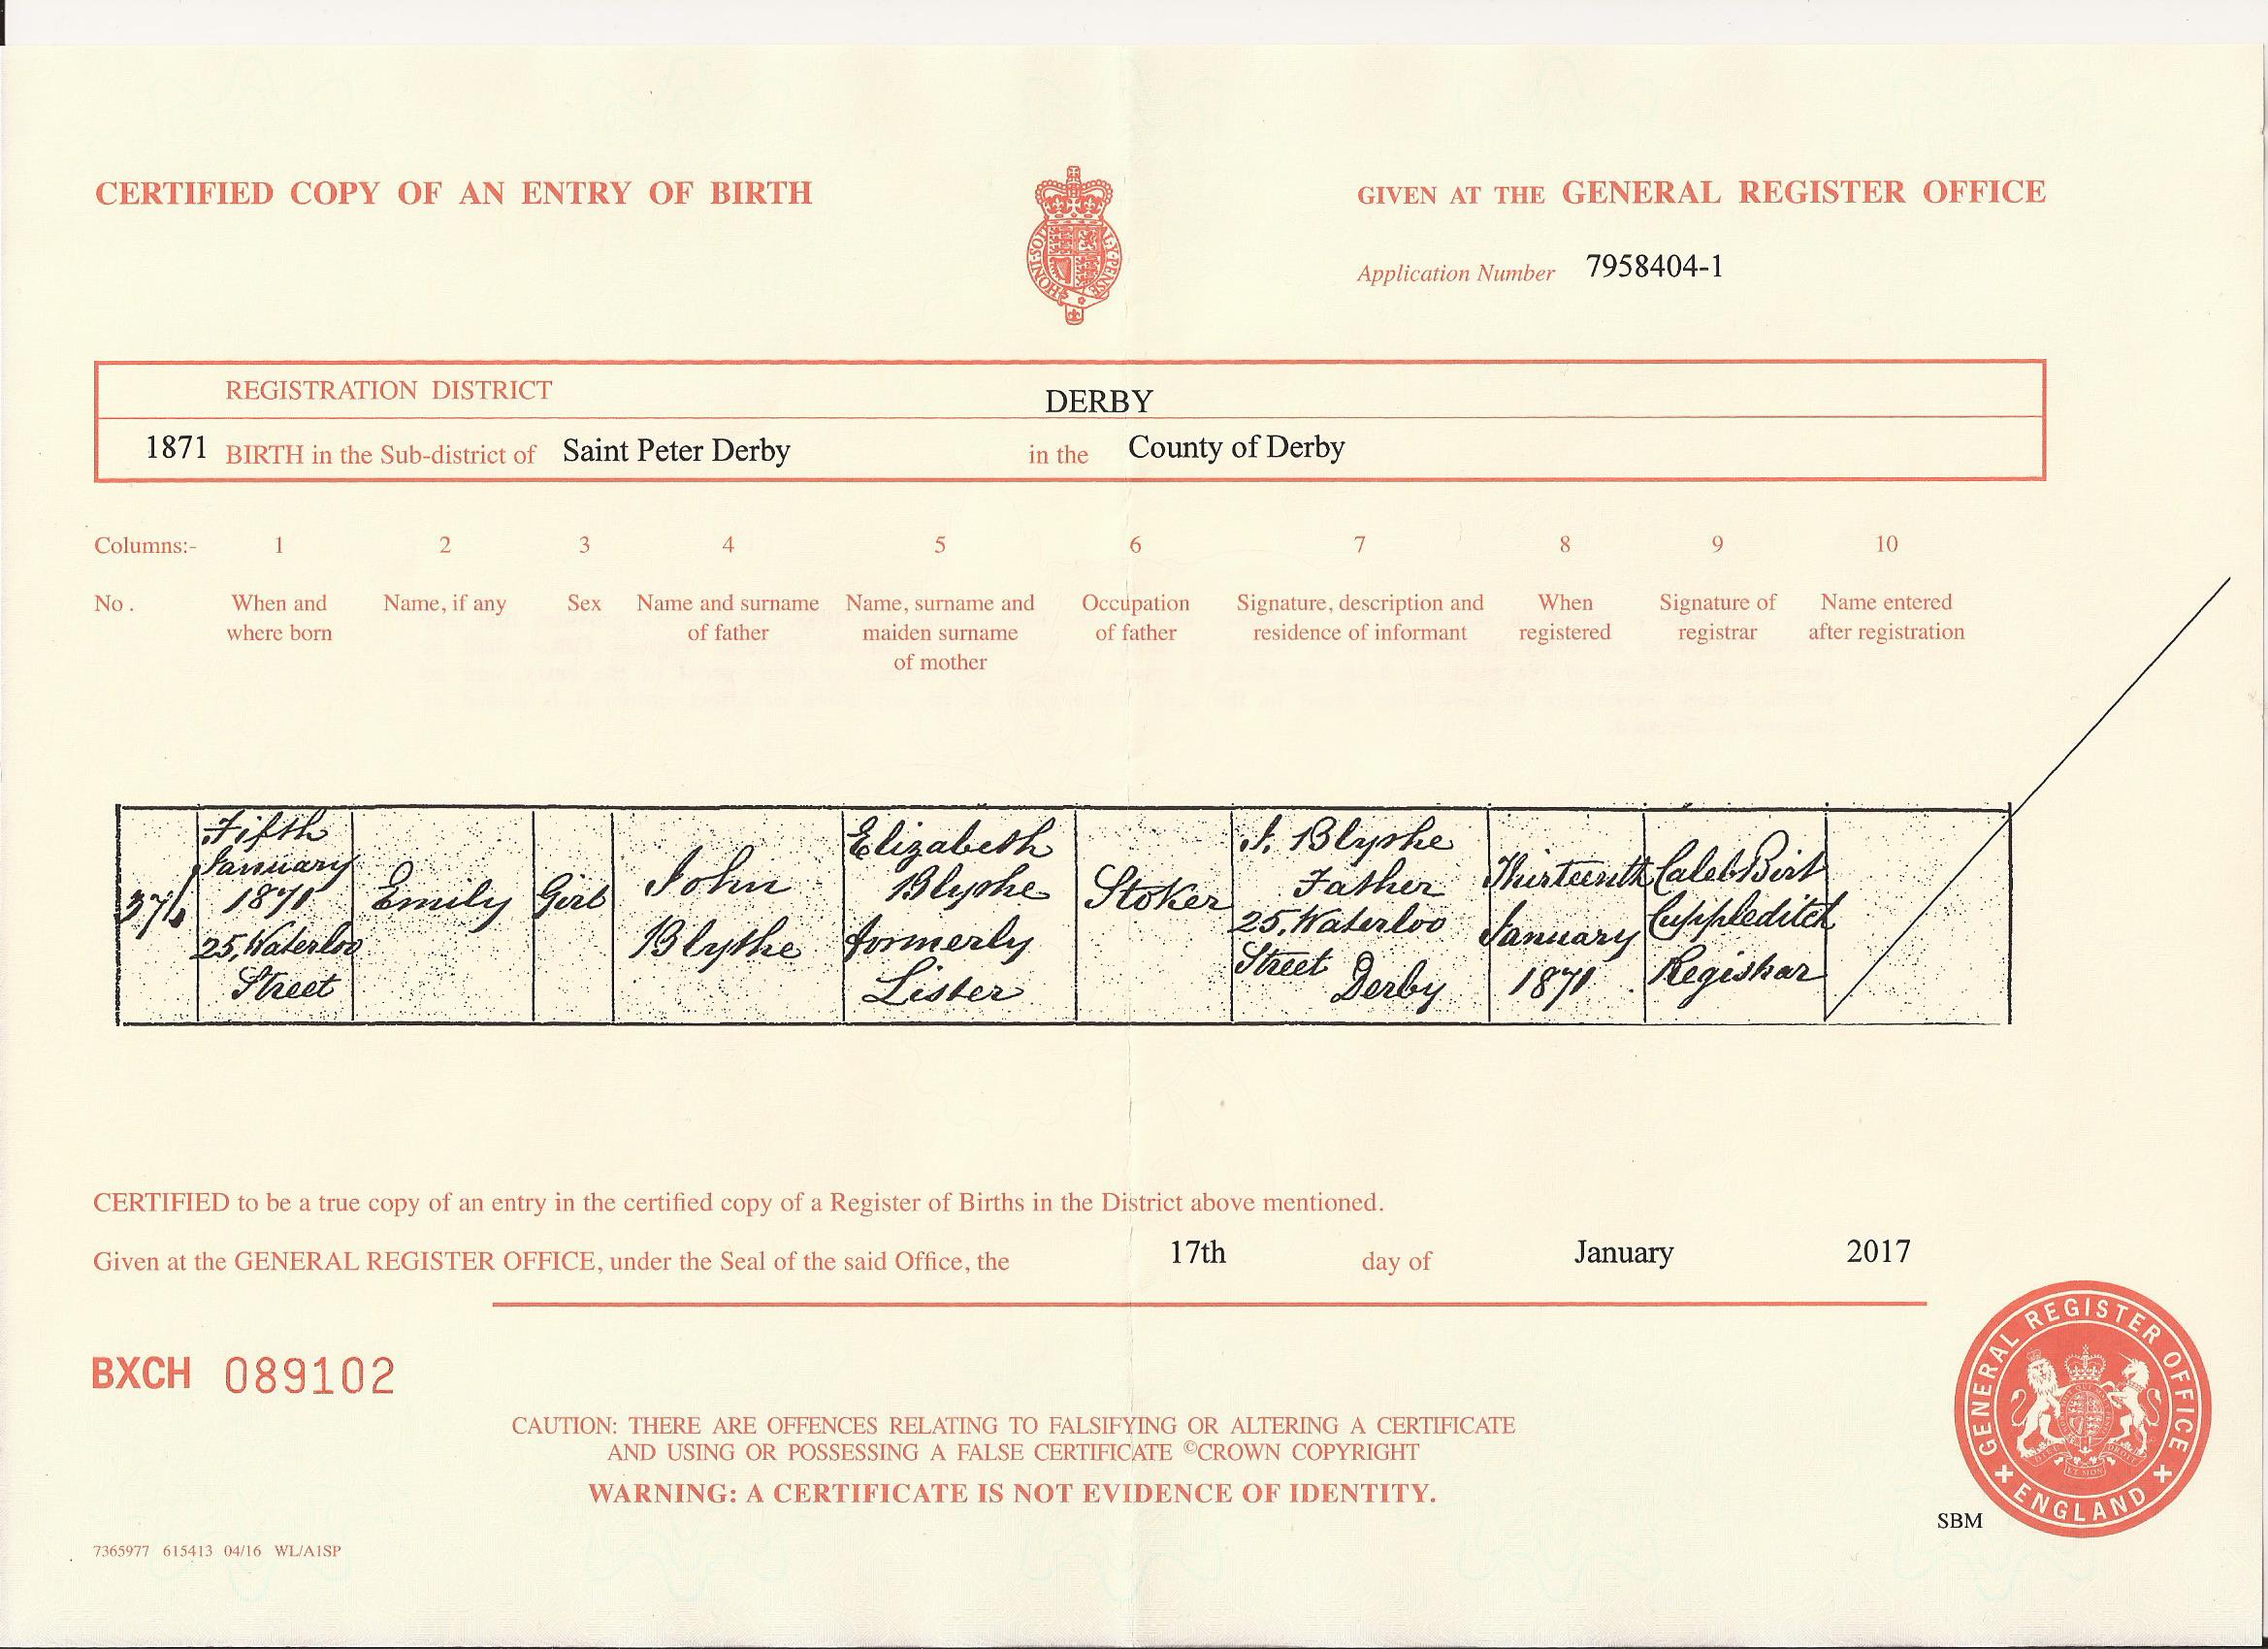 CERTIFIED COPY OF AN ENTRY OF BIRTH
GIVEN AT THE GENERAL REGISTER OFFICE
Application Number 7958404-1
REGISTRATION DISTRICT DERBY
1871 BIRTH in the Sub-district of Saint Peter Derby in the County of Derby
Columns:- 1 2 3 4 5 6 7 8 9 10
No. When and where born
Name, if any
Sex
Name and surname of father
Name, surname and maiden surname of mother
Occupation of father
Signature, description and residence of informant
When registered
Signature of registrar
Name entered after registration
Fifth
January
1871
25, Waterloo
Street
Emily
Girl
John
Blythe
Elizabeth
Blythe
formerly
Lister
Stoker
J. Blythe
Father
25, Waterloo
Street Derby
Thirteenth
January
1871
Caleb Birt
Cuppleditch
Registrar
CERTIFIED to be a true copy of an entry in the certified copy of a Register of Births in the District above mentioned.
Given at the GENERAL REGISTER OFFICE, under the Seal of the said Office, the 17th day of January 2017
BXCH 089102
CAUTION: THERE ARE OFFENCES RELATING TO FALSIFYING OR ALTERING A CERTIFICATE
AND USING OR POSSESSING A FALSE CERTIFICATE ©CROWN COPYRIGHT
WARNING: A CERTIFICATE IS NOT EVIDENCE OF IDENTITY.
GENERAL REGISTER OFFICE
ENGLAND
SBM
7365977 615413 04/16 WL/A1SP